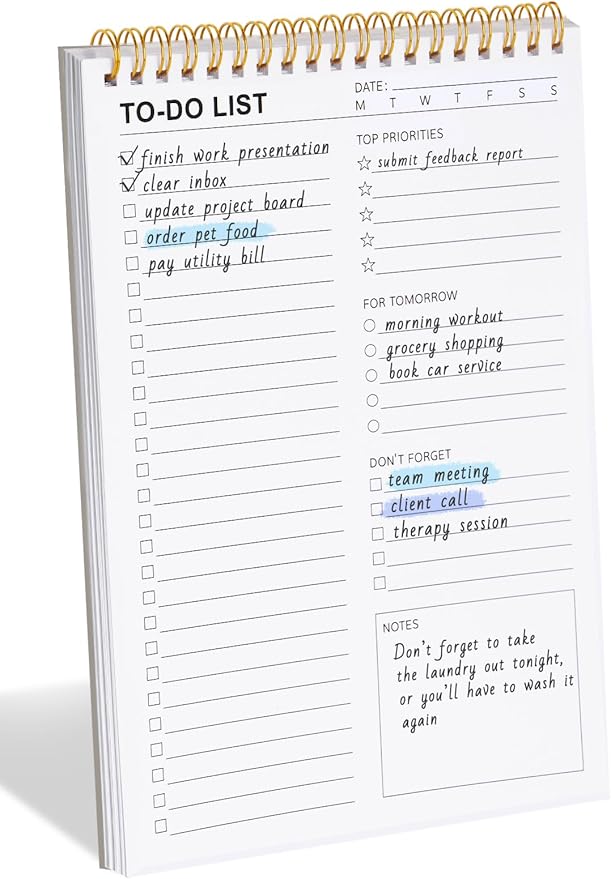 TO-DO LIST
DATE:
M T W T F S S
finish work presentation
clear inbox
update project board
order pet food
pay utility bill
TOP PRIORITIES
submit feedback report
FOR TOMORROW
morning workout
grocery shopping
book car service
DON'T FORGET
team meeting
client call
therapy session
NOTES
Don't forget to take
the laundry out tonight,
or you'll have to wash it
again